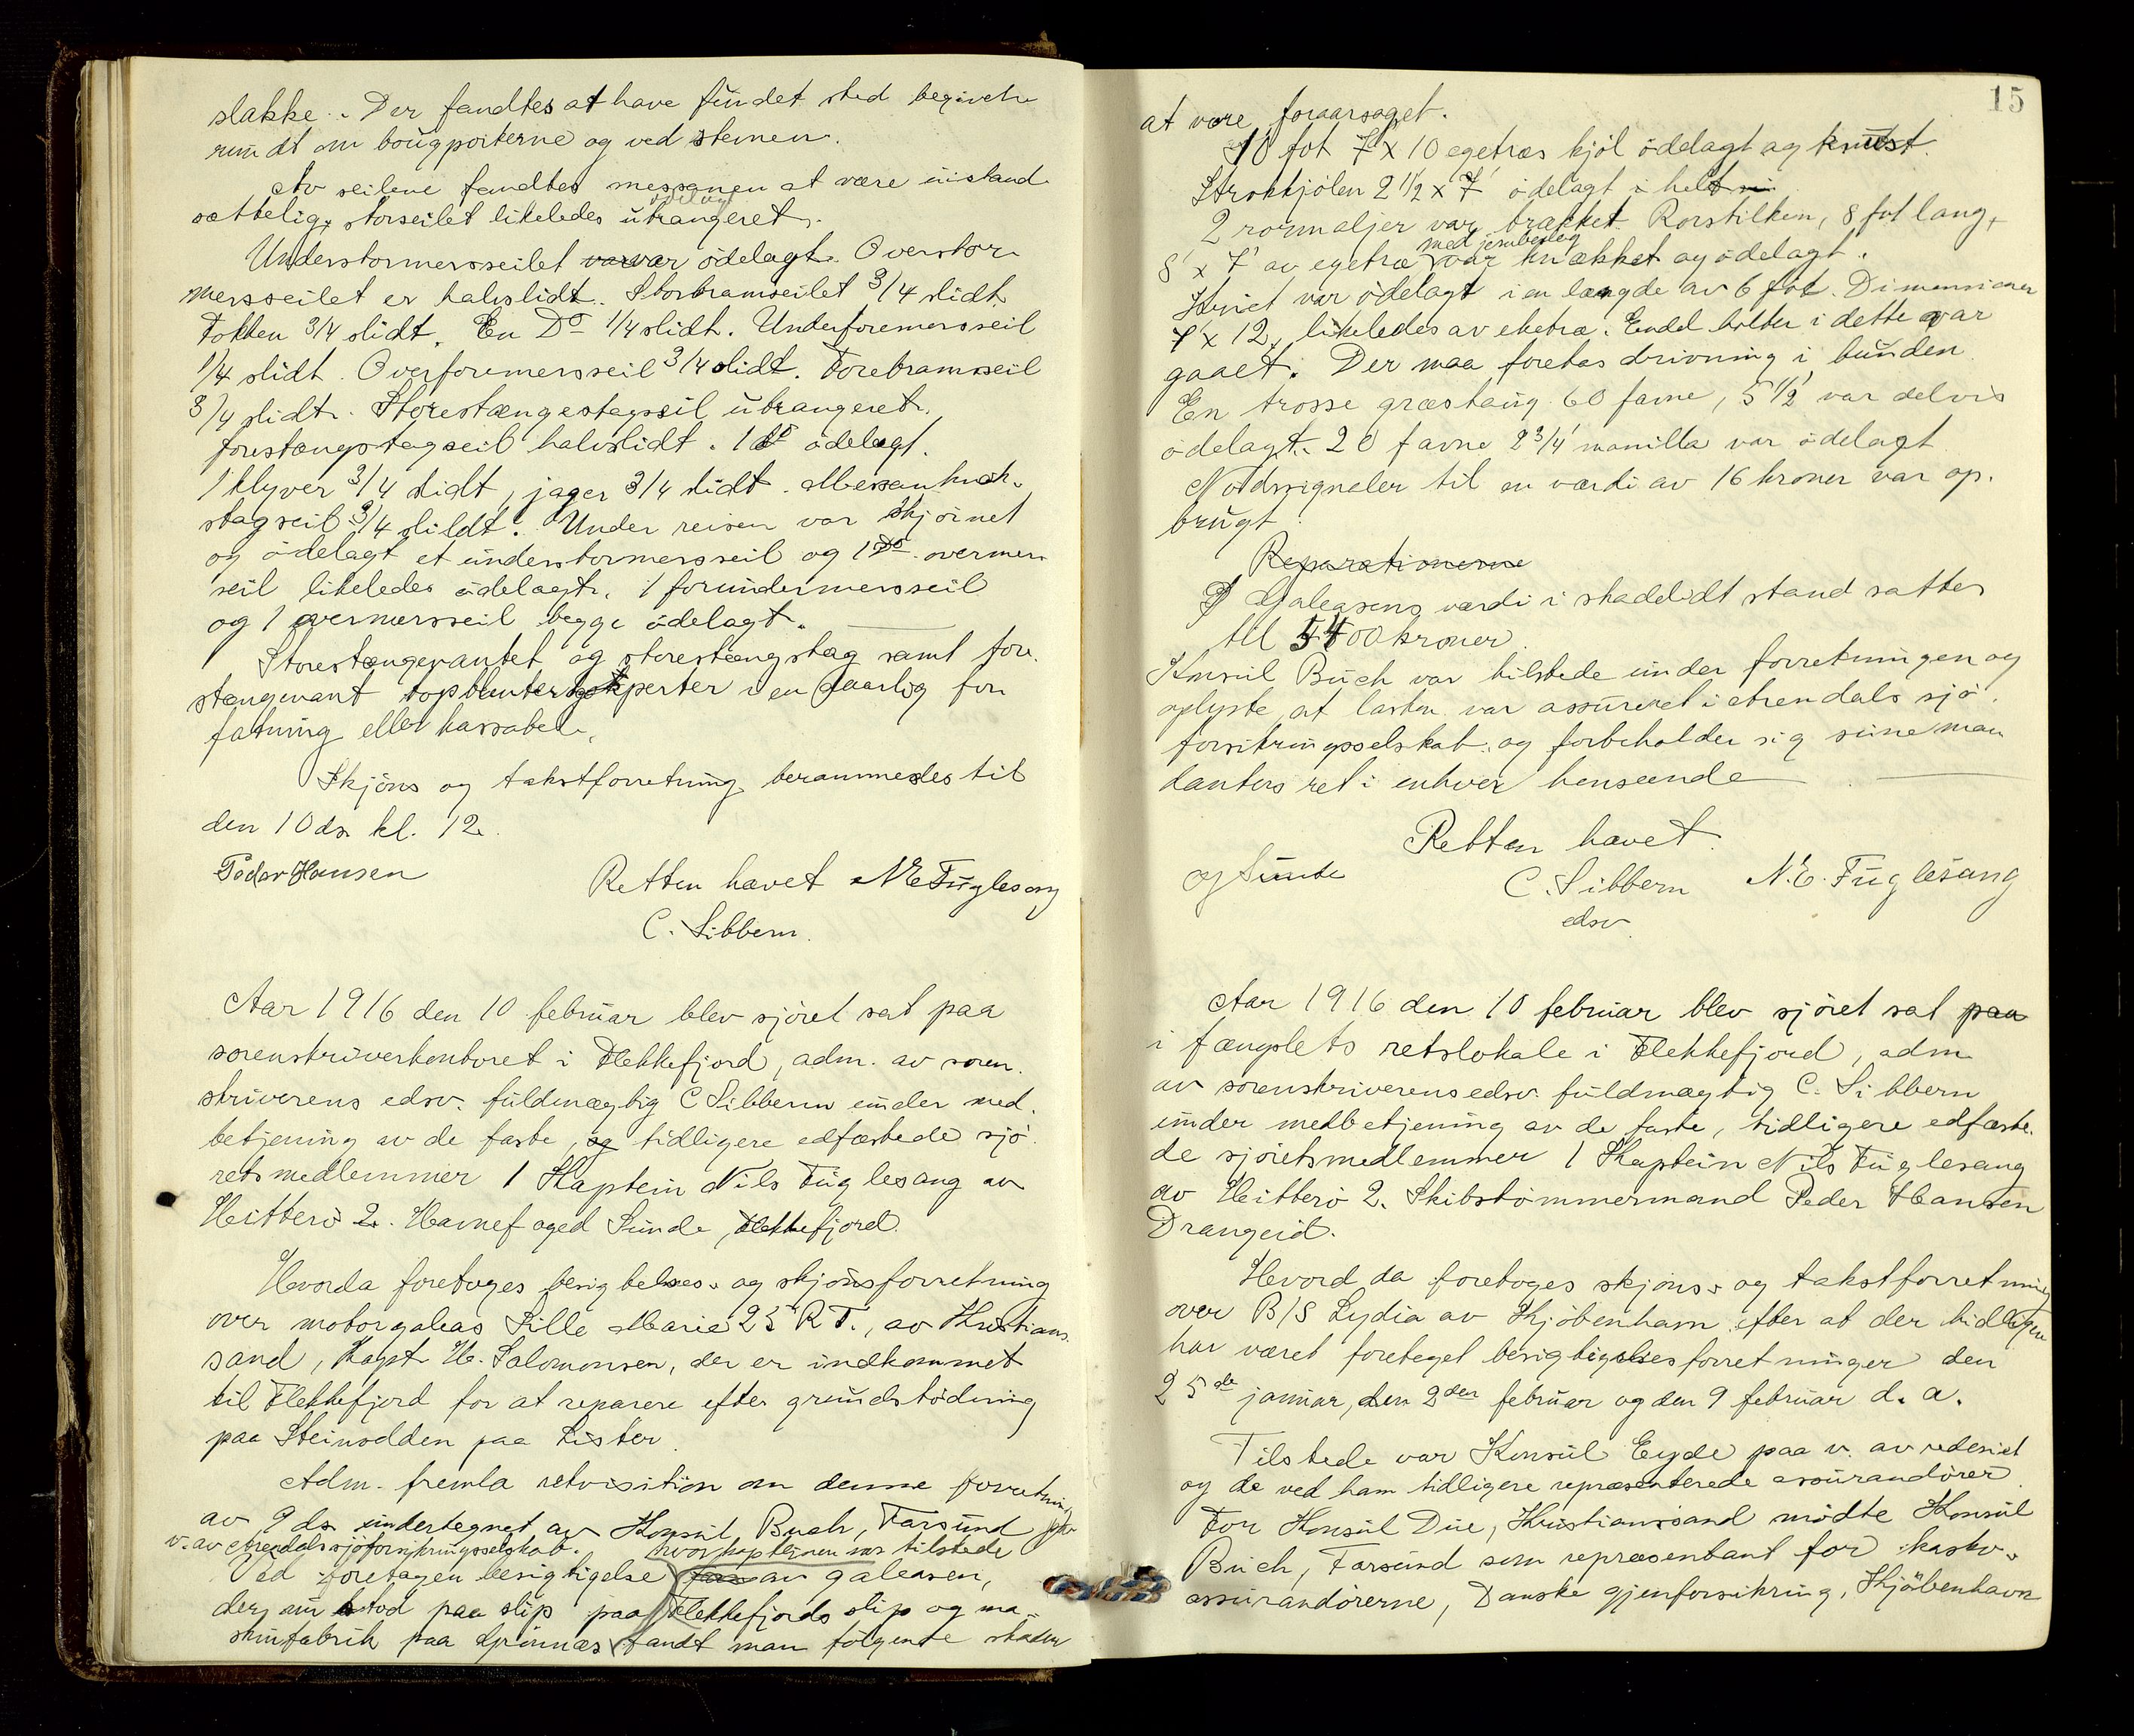 slakke. Der fandtes at have fundet sted begivelse
rundt om bougporterne og ved stemen.
Av seilene fandtes messanen at være istand
sættelig, storseilet likeledes utrangeret.
Understormersseilet var var ödelagt. Overstor
mersseilet er halvslidt. Storbramseilet 3/4 slidt
Fokken 3/4 slidt. En Do 1/4 slidt. Underforemersseil
1/4 slidt. Overforemersseil 3/4 slidt. Forebramseil
3/4 slidt. Storestængestagseil utrangeret.
forestængstagseil halvslidt. 1 do ödelagt.
1 klyver 3/4 slidt, jager 3/4 slidt. Mesan
stagseil 3/4 slildt. Under reisen var skjöinet
og ödelagt et understormersseil og 1 Do. overmers
seil likeledes ödelagt. 1 forundermersseil
og 1 overmersseil begge ödelagt.
Storestængevantet og storestængstag samt fore.
stængevant i en daarlig for
fatning eller kassabel.
Skjöns og takstforretning berammedes til
den 10 ds. kl. 12.
Peder Hansen Retten hævet N E Fuglesang
C. Sibbern.
Aar 1916 den 10 februar blev sjöret sat paa
sorenskriverkontoret i Flekkefjord, adm. av soren.
skriverens edsv. fuldmægtig C Sibbern under med.
betjening av de faste, og tidligere edfæstede sjö
retsmedlemmer 1 Kaptein Nils Fuglesang av
Hitterö 2. Havnefoged Sunde, Flekkefjord.
Hvorda foretoges besigtelses- og skjönsforretning
over motorgaleas Lille Marie 25 R T., av Kristians.
sand, Kapt. H. Salomonsen, der er indkommet
til Flekkefjord for at reparere efter grundstödning
paa Steinodden paa Lister.
Adm. fremla rekvisition om denne forretning
av 9 ds. undertegnet av Konsul Buch, Farsund
v. av Arendals sjöforsikringsselskab. hvor kapteinen var tilstede
Ved foretagen besigtigelse av galeasen,
der nu stod paa slip paa Flekkefjords slip og ma-
skinfabrik paa Grönnæs fandt man fölgende skader
15
at være foraarsaget.
18 fot 7 x 10 egetræs kjöl ödelagt og knust.
Straakjölen 2 1/2 x 7' ödelagt i helt
2 rormaljer var brækket. Rorstilken, 8 fot lang,
med jernbeslag
8' x 7' av egetræ var knækket og ödelagt.
Knict var ödelagt i en længde av 6 fot. Dimensioner
7' x 12, likeledes av eketræ. Endel bolter i dette var
gaaet. Der maa foretas drivning i bunden
En trosse græstaug 60 favne, 5 1/2' var delvis
ödelagt. 20 favne 2 3/4' manilla var ödelagt
Nodssignaler til en værdi av 16 kroner var op.
brugt.
Reparationerne
Galeasens værdi i skadelidt stand sattes
til 5400 kroner.
Konsul Buch var tilstede under forretningen og
oplyste at lasten var assureret i Arendals sjö.
forsikringsselskab. og forbeholder sig sine man
danters ret i enhver henseende
Retten hævet.
Og Sunde C. Sibbern N. E. Fuglesang
edsv.
Aar 1916 den 10 februar blev sjöret sat paa
i fængslets retslokale i Flekkefjord, adm.
av sorenskriverens edsv. fuldmægtig C. Sibbern
under medbetjening av de faste, tidligere edfæste.
de sjöretsmedlemmer 1 Kaptein Nils Fuglesang
av Hitterö 2. Skibstömmermand Peder Hansen
Drangeid.
Hvord da foretoges skjöns- og takstforretning
over B/S Lydia av Kjöbenhavn efter at der tidligere
har været foretaget besigtigelsesforretninger den
25de januar, den 2den februar og den 9 februar d. a.
Tilstede var Konsul Eyde paa v. av rederiet
og de ved ham tidligere repræsenterede assurandörer.
For Konsul Due, Kristianssand mödte Konsul
Buch, Farsund som repræsentant for kasko-
assurandörerne, Danske gjenforsikring, Kjöbenhavn